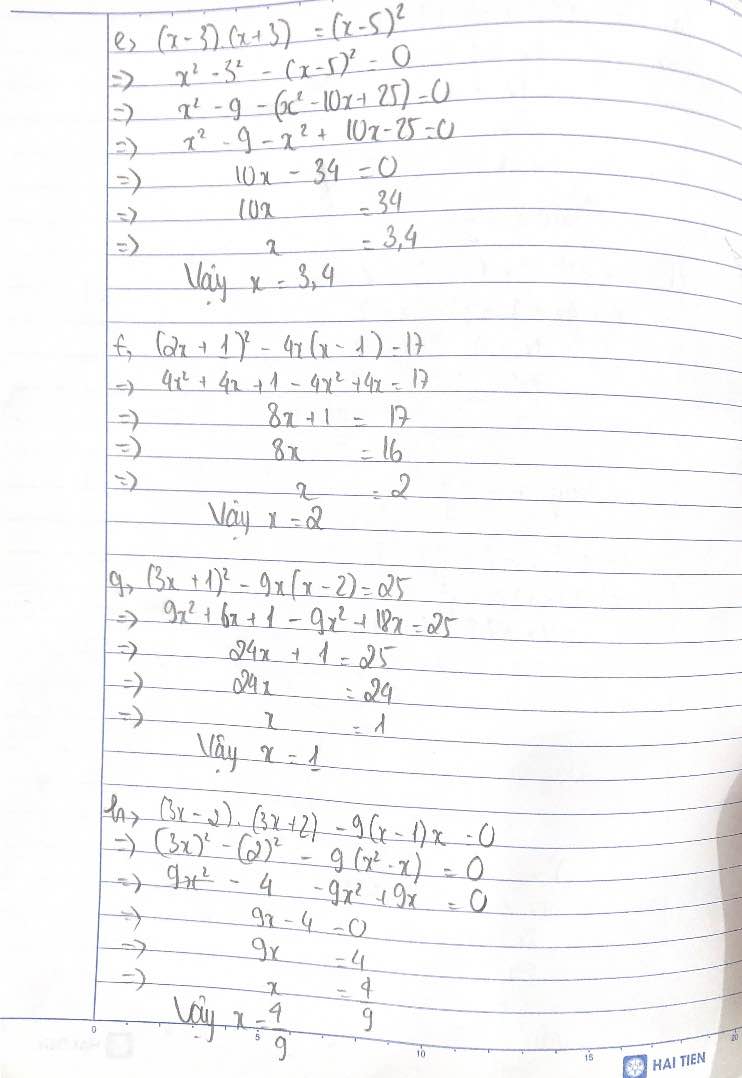 e, (x-3).(x+3) = (x-5)²
=> x² - 3² - (x-5)² = 0
=> x² - 9 - (x² - 10x + 25) = 0
=> x² - 9 - x² + 10x - 25 = 0
=> 10x - 34 = 0
=> 10x = 34
=> x = 3,4
Vậy x = 3,4
f, (2x + 1)² - 4x(x - 1) = 17
=> 4x² + 4x + 1 - 4x² + 4x = 17
=> 8x + 1 = 17
=> 8x = 16
=> x = 2
Vậy x = 2
g, (3x + 1)² - 9x(x - 2) = 25
=> 9x² + 6x + 1 - 9x² + 18x = 25
=> 24x + 1 = 25
=> 24x = 24
=> x = 1
Vậy x = 1
h, (3x - 2).(3x + 2) - 9(x - 1)x = 0
=> (3x)² - (2)² - 9(x² - x) = 0
=> 9x² - 4 - 9x² + 9x = 0
=> 9x - 4 = 0
=> 9x = 4
=> x = 4/9
Vậy x = 4/9
0 5 10 15 20
HAI TIEN